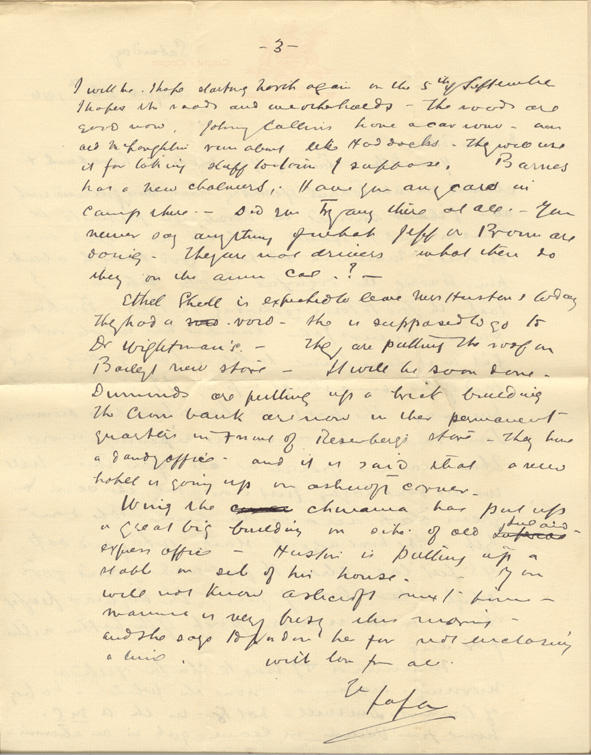 -3-
I will be I hope starting North again on the 5th of September
I hopes the roads and weather holds - The roads are
good now. Johny Collins have a car now - and
old McLaughlin run about like Haddocks - They will use
it for taking stuff to I suppose. Barnes
has a new chalmers. Have you any cars in
camp there - Did you try any there at all - You
never say anything of what Jeff or Brown are
doing. They are not drivers what then do
they on the car ? -
Ethel Shell is expected to leave Mrs Hustons today
They had a row - she is supposed to go to
Dr Wightman's - They are putting the roof on
Baileys new store - It will be soon done -
Dumonds are putting up a brick building
The bank are now in their permanent
quarters in front of store - They have
a dandy office - and it is said that a new
hotel is going up on ashcroft corner -
Wing the chinaman has put up
a great big building on site of old
express office - Huston is putting up a
stable on side of his house. - You
will not know ashcroft next time -
is very busy this morning -
and she says to pardon her for not enclosing
a line. with love from all.
Papa